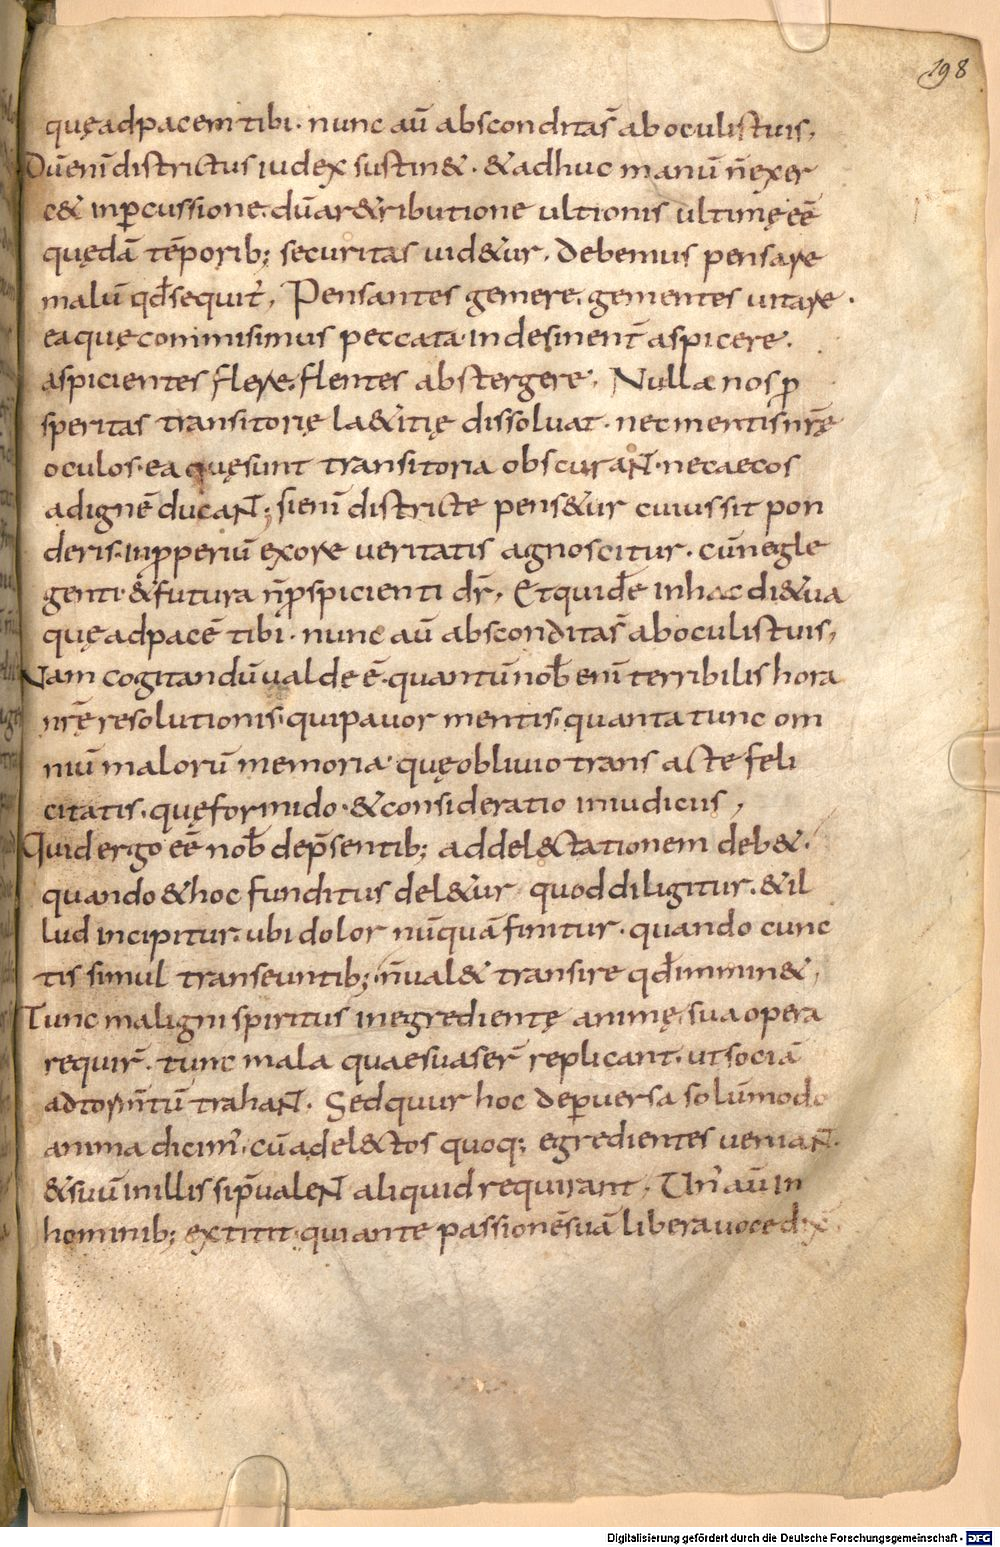 198
quęadpacem tibi· nunc aū absconditas̄ ab oculistuis,
Dūenī districtus iudex sustin&· &adhuc manū n̄exer
c& inꝑcussione. dūar&ributione ultionis ultimę eē
quędā tēporib; securitas uid&ur, debemus pensare
malū qđsequit̄, Pensantes gemere. gementes uitare·
eaquęcommisimus peccata· indesinent̄ aspicere.
aspicientes flere. flentes abstergere, Nullae nos ꝓ
speritas transitorię la&itię dissoluat· nec mentis nr̄ę
oculos· ea quęsunt transitoria obscurant· necaecos
adignē ducant; sienī districte pens&ur cuiussit pon
deris. inꝓperiū exore ueritatis agnoscitur· cūnegle
genti· &futura n̄ꝓspicienti dr̄, Etquidē inhac di&ua
quęadpacē tibi· nunc aū absconditas̄ ab oculistuis,
Nam cogitandūualde ē· quantūnob̄ enī terribilis hora
nr̄ē resolutionis· quipauor mentis. quanta tunc om
niū malorū memoria· quęobliuio transacte feli
citatis. quęformido· &consideratio iniudicus,
Quid ergo eē nob̄ dep̄sentib; addel&ctationem deb&·
quando &hoc funditus del&ur quoddiligitur. &il
lud incipitur. ubi dolor nūquā finitur· quando cunc
tis simul transeuntib; n̄ual& transire qđimmin&,
Tunc maligni spiritus inegredientę animę. sua opera
requir̄. tunc mala quaesuaser̄ replicant. ut sociā
adtorm̄tū trahant. Sedquur hoc deꝑuersa solūmodo
anima dicim̄. cū adel&ctos quoq; egredientes ueniant.
&suū inillis sip̄ualent aliquidrequirant, Un̄ aū in
hominib; extitit· quiante passionēsuā libera uoce dix̄
Digitalisierung gefördert durch die Deutsche Forschungsgemeinschaft - DFG